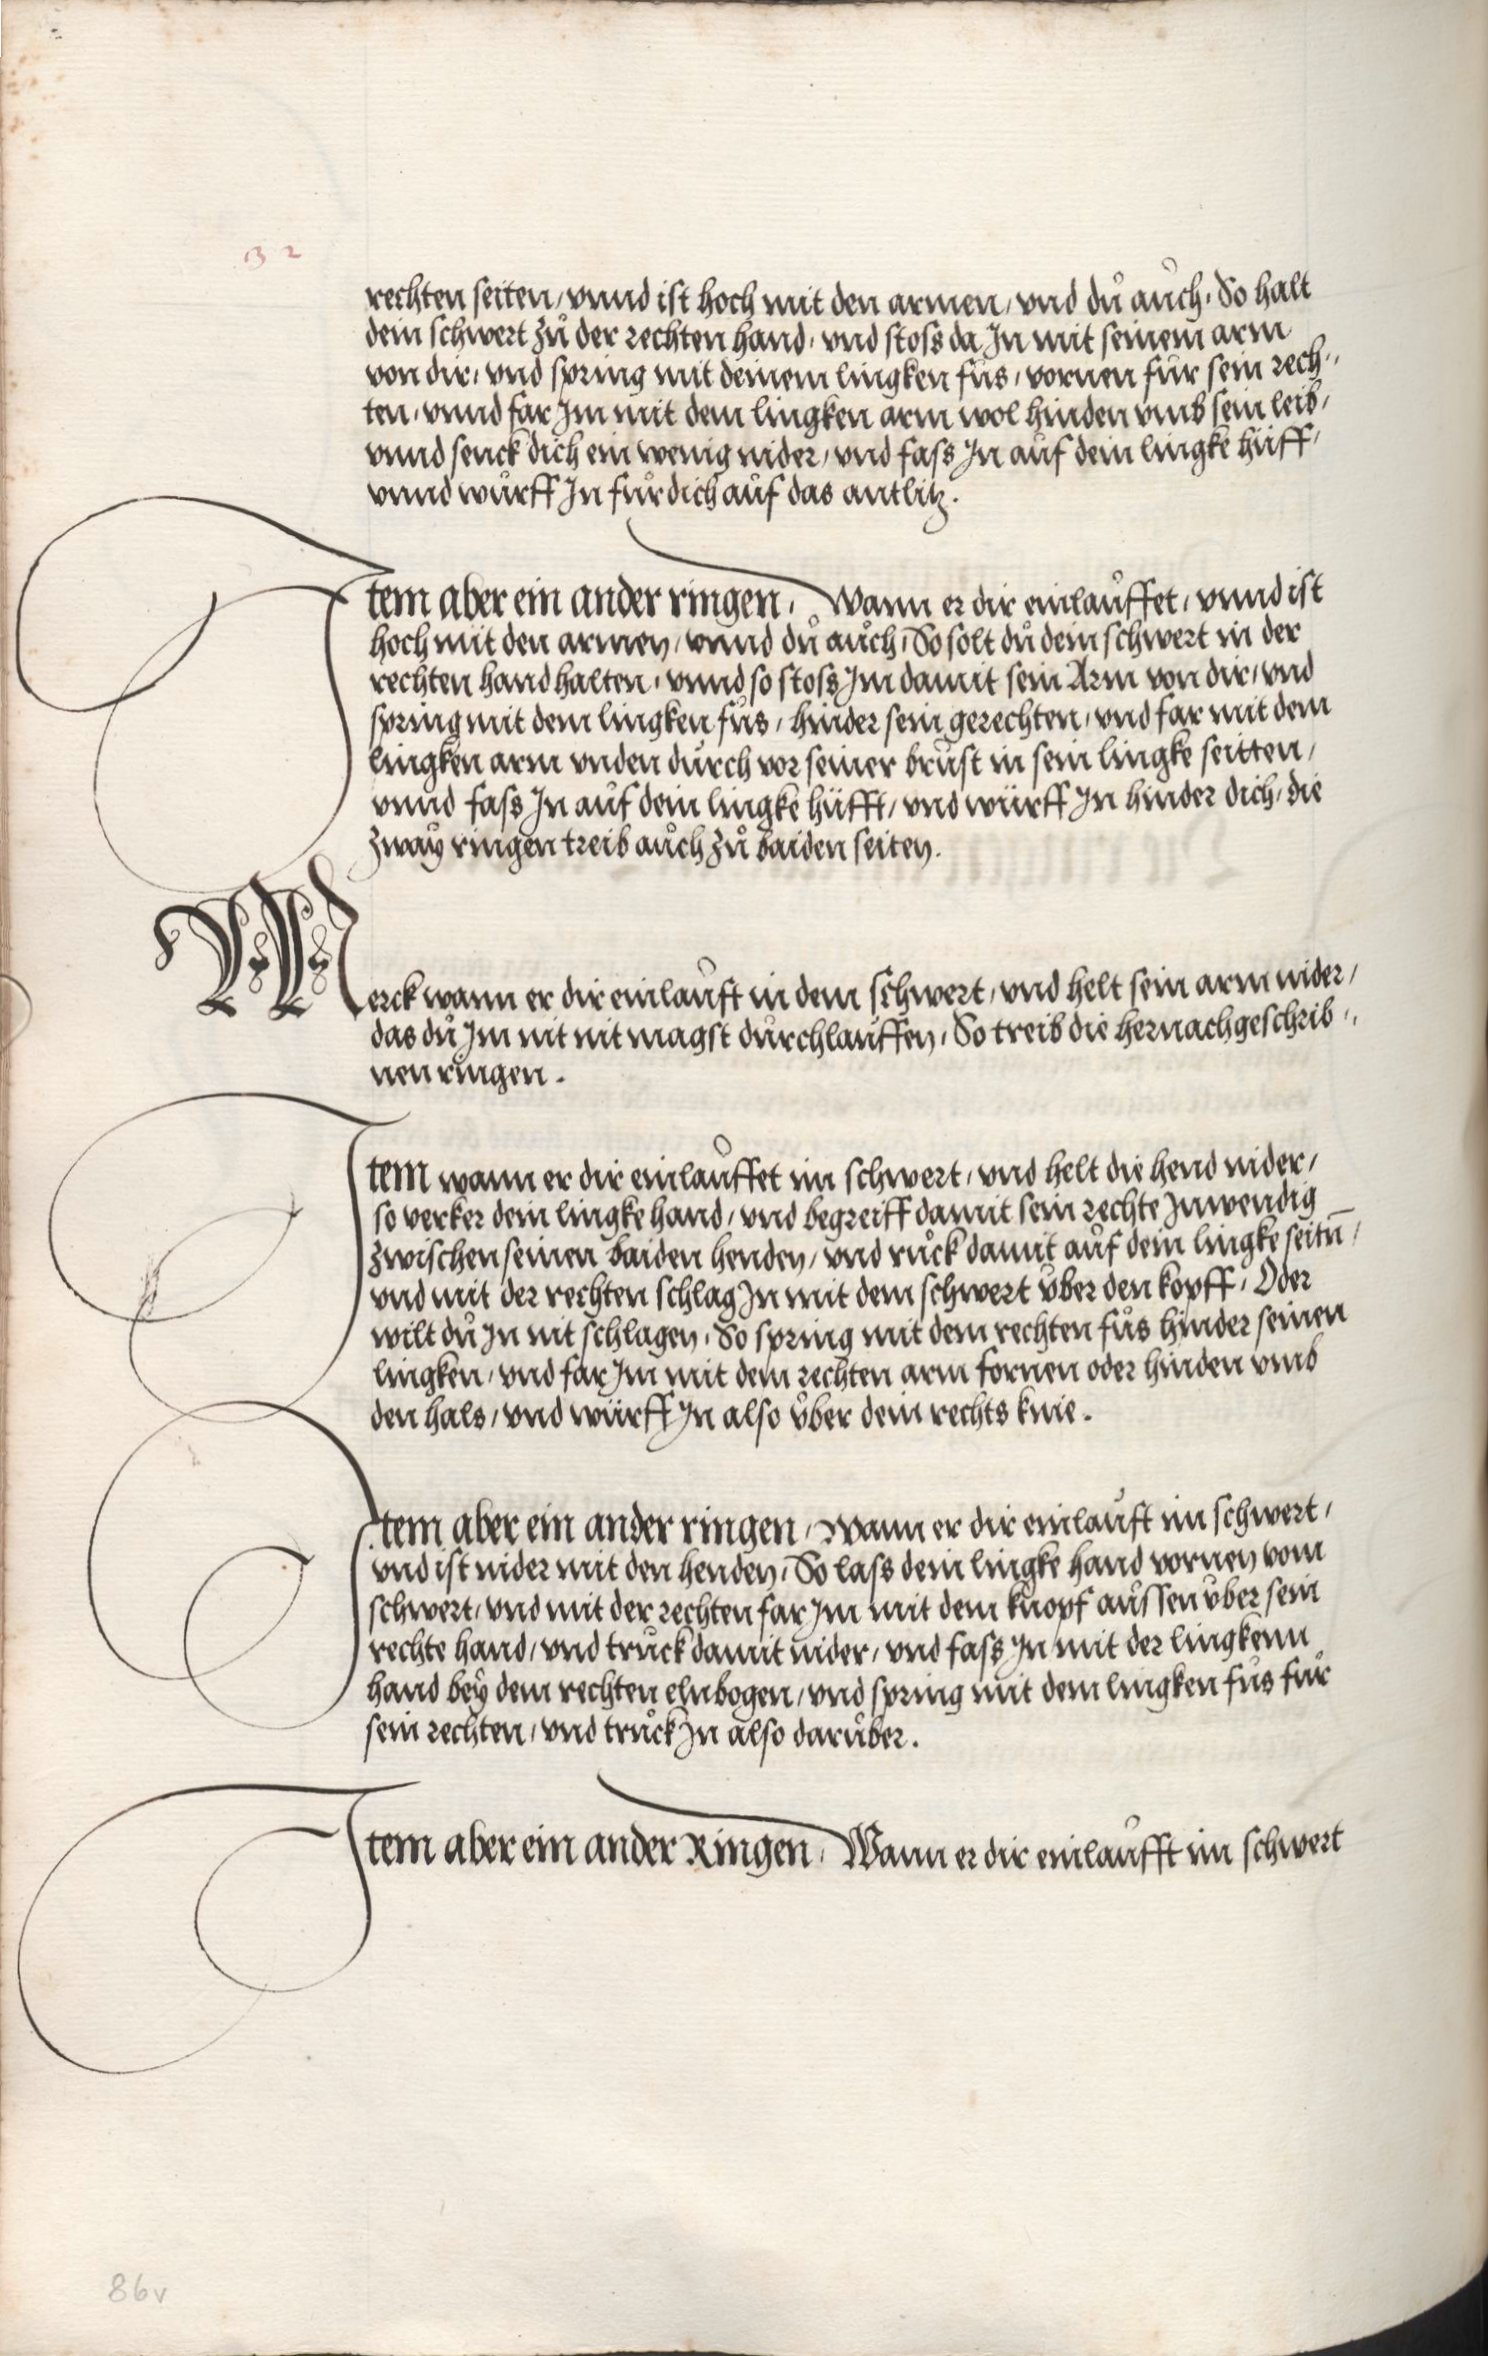 32
rechten seiten / vnnd ist hoch mit den armen / vnd dů aůch / So halt
dein schwert zů der rechten hand / vnd stoss da In mit seinem arm
von dir / vnd spring mit deinem lingken fůs / vornen fůr sein rech//
ten / vnnd far Im mit dem lingken arm wol hinden vmb sein leib /
vnnd senck dich ein wenig nider / vnd fass In aůf dein lingke hüff /
vnnd wůrff In fůr dich aůf das antlitz .
Item aber ein ander ringen / Wann er dir einlaůffet / vnnd ist
hoch mit den armen / vnnd dů aůch / So solt dů dein schwert in der
rechten hand halten / vnnd so stoss Im damit sein Arm von dir / vnd
spring mit dem lingken fůs / hinder sein gerechten / vnd far mit dem
lingken arm vnden důrch vor seiner brůst in sein lingke seitten /
vnnd fass In aůf dein lingke hüfft / vnd würff In hinder dich / die
zwaÿ ringen treib aůch zů baiden seiten .
Merck wann er dir einlaůft in dem schwert / vnd helt sein arm nider /
das dů Im nit nit magst důrchlaůffen / So treib die hernachgeschrib//
nen ringen .
Item wann er dir einlaůffet im schwert / vnd helt die hend nider /
so verker dein lingke hand / vnd begreiff damit sein rechte Inwendig
zwischen seinen baiden henden / vnd růck damit aůf dein lingke seitn̄ /
vnd mit der rechten schlag In mit dem schwert ůber den kopff / Oder
wilt dů In nit schlagen / So spring mit dem rechten fůs hinder seinen
lingken / vnd far Im mit dem rechten arm fornen oder hinden vmb
den hals / vnd würff In also ůber dein rechts knie .
Item aber ein ander ringen / Wann er dir einlaůft im schwert /
vnd ist nider mit den henden / So lass dein lingke hand vornen vom
schwert / vnd mit der rechten far Im mit dem knopf aůssen ůber sein
rechte hand / vnd trůck damit nider / vnd fass In mit der lingkenn
hand beÿ dem rechten elnbogen / vnd spring mit dem lingken fůs fůr
sein rechten / vnd trůck In also darůber .
Item aber ein ander Ringen / Wann er dir einlaůfft im schwert
86v